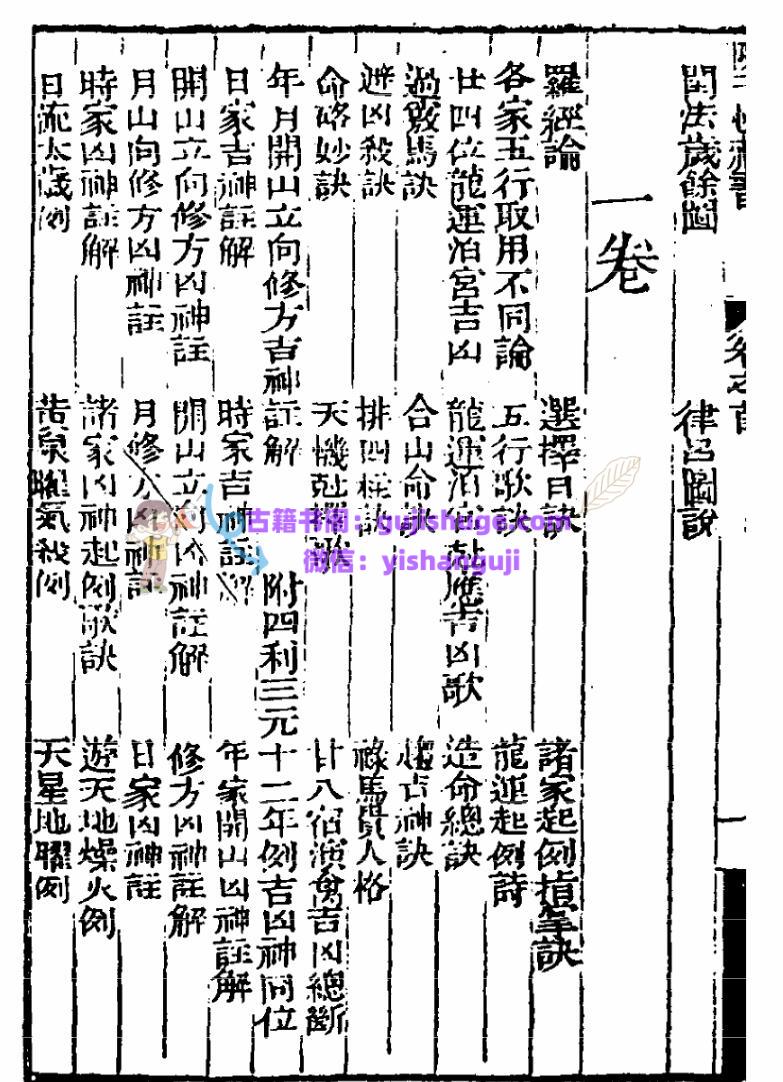 閏法歲餘圖 律呂圖說
一卷
羅經論 選擇日訣 諸家起例掯掌訣
各家五行取用不同論 五行歌訣 龍運起例詩
廿四位龍運泊宮吉凶 龍運泊宮尅應吉凶歌 造命總訣
合山命訣 吉神訣
避凶殺訣 排四柱訣 祿馬貴人格
命格妙訣 天機尅擇歌 廿八宿演禽吉凶總斷
年月開山立向修方吉神註解 附四利三元十二年例吉凶神同位
日家吉神註解 時家吉神註解 年家開山凶神註解
開山立向修方凶神註 開山立向凶神註解 修方凶神註解
月山向修方凶神註 月修方凶神註 日家凶神註
時家凶神註解 諸家凶神起例歌訣 遊天地燥火例
日流太歲例 黃泉曜氣殺例 天星地曜例
古籍书阁：gujishuge.com
微信：yishanguji